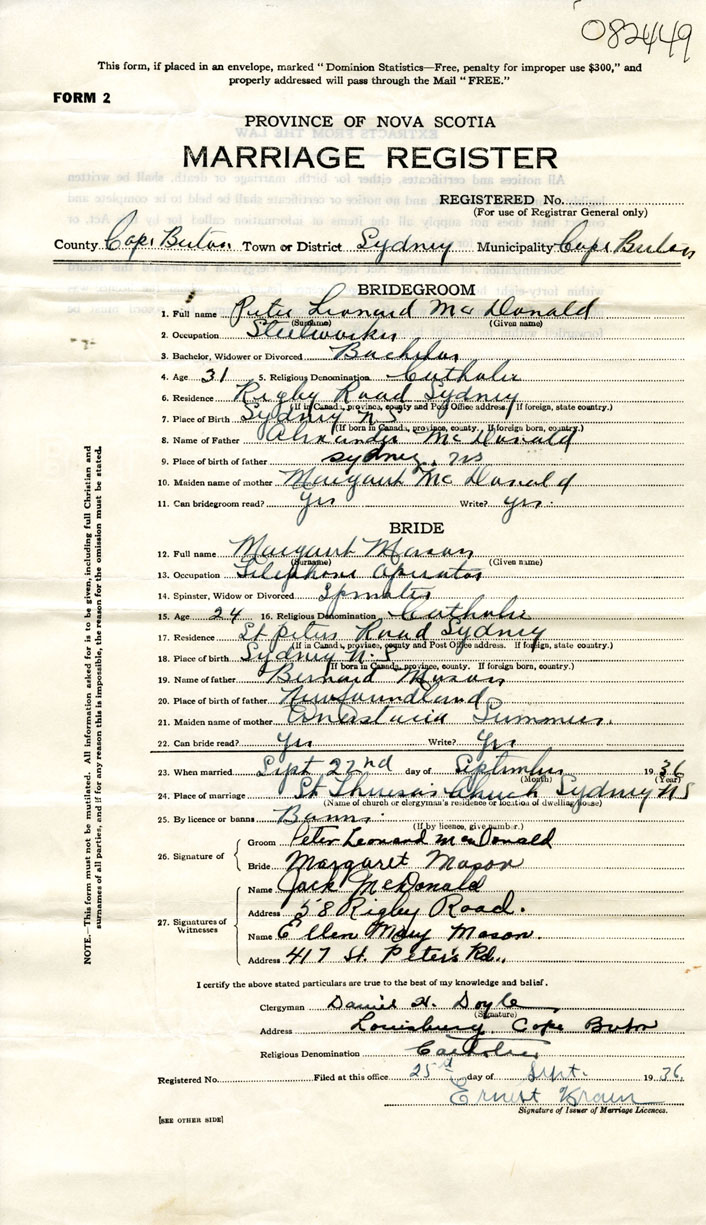 082449
This form, if placed in an envelope, marked "Dominion Statistics—Free, penalty for improper use $300," and
properly addressed will pass through the Mail "FREE."
FORM 2
PROVINCE OF NOVA SCOTIA
MARRIAGE REGISTER
REGISTERED No.
(For use of Registrar General only)
County Cape Breton Town or District Sydney Municipality Cape Breton
BRIDEGROOM
1. Full name Peter Leonard McDonald
(Surname) (Given name)
2. Occupation Steelworker
3. Bachelor, Widower or Divorced Bachelor
4. Age 31 5. Religious Denomination Catholic
6. Residence Rigby Road Sydney
(If in Canada, province, county and Post Office address. If foreign, state country.)
7. Place of Birth Sydney N.S
(If born in Canada, province, county. If foreign born, country.)
8. Name of Father Alexander McDonald
9. Place of birth of father Sydney, NS
10. Maiden name of mother Margaret McDonald
11. Can bridegroom read? yes Write? yes.
BRIDE
12. Full name Margaret Mason
(Surname) (Given name)
13. Occupation Telephone Operator
14. Spinster, Widow or Divorced Spinster
15. Age 24 16. Religious Denomination Catholic
17. Residence St Peters Road Sydney
(If in Canada, province, county and Post Office address. If foreign, state country.)
18. Place of birth Sydney N.S
(If born in Canada, province, county. If foreign born, country.)
19. Name of father Bernard Mason
20. Place of birth of father Newfoundland
21. Maiden name of mother Summers.
22. Can bride read? Yes Write? Yes
23. When married Sept 22nd day of September 1936
(Month) (Year)
24. Place of marriage St Theresas Church Sydney NS
(Name of church or clergyman's residence or location of dwelling house)
25. By licence or banns Banns.
(If by licence, give number.)
26. Signature of
Groom Peter Leonard McDonald
Bride Margaret Mason
27. Signatures of Witnesses
Name Jack McDonald
Address 58 Rigby Road.
Name Ellen Mary Mason.
Address 417 St. Peter's Rd.,
I certify the above stated particulars are true to the best of my knowledge and belief.
Clergyman Daniel H. Doyle
(Signature)
Address Louisburg, Cape Breton
Religious Denomination Catholic
Registered No. Filed at this office 25th day of Sept. 1936.
Ernest
Signature of Issuer of Marriage Licences.
[SEE OTHER SIDE]
NOTE.—This form must not be mutilated. All information asked for is to be given, including full Christian and
surnames of all parties, and if for any reason this is impossible, the reason for the omission must be stated.